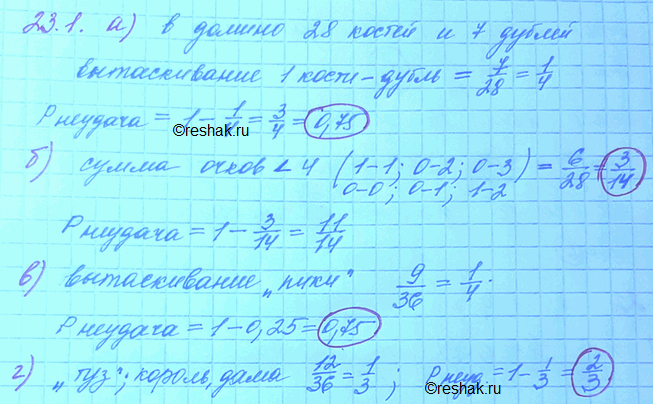 23.1. а) в домино 28 костей и 7 дублей
вытаскивание 1 кости - дубль = 7/28 = 1/4
P неудача = 1 - 1/4 = 3/4 = 0,75
©reshak.ru
б) сумма очков < 4 (1-1; 0-2; 0-3) = 6/28 = 3/14
0-0; 0-1; 1-2
P неудача = 1 - 3/14 = 11/14
в) вытаскивание „пики" 9/36 = 1/4.
P неудача = 1 - 0,25 = 0,75
г) „туз"; король, дама 12/36 = 1/3; P неуд. = 1 - 1/3 = 2/3
©reshak.ru